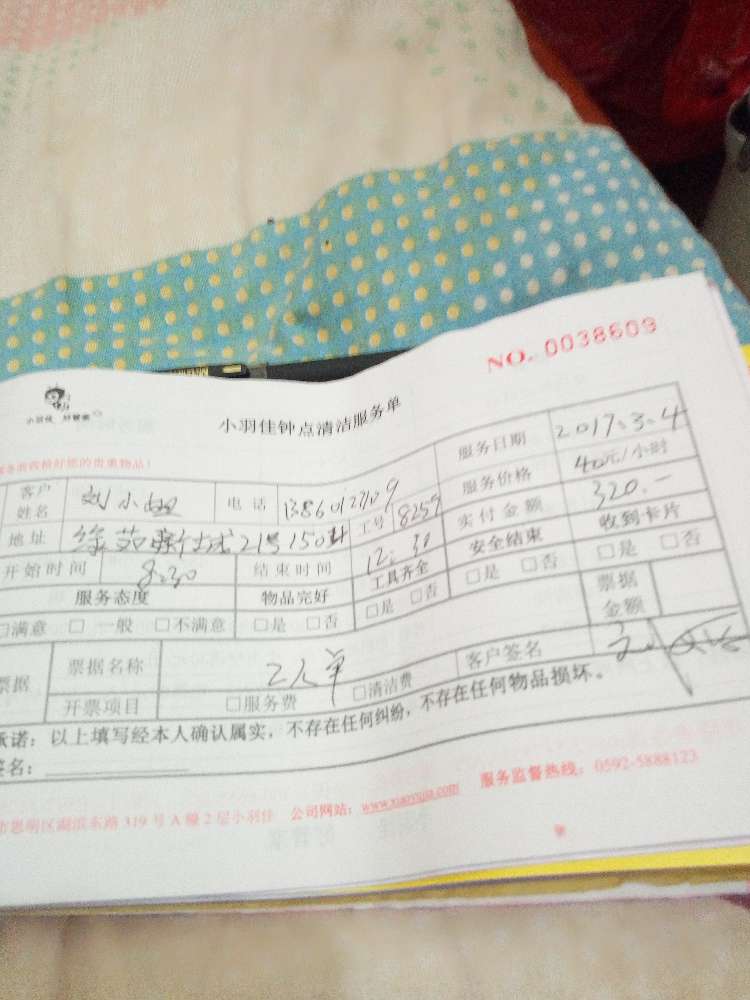 NO. 0038609
小羽佳 好管家
小羽佳钟点清洁服务单
贵重物品!
客户姓名 刘小姐 电话 服务日期 2017.3.4
地址 21号 工号 8259 服务价格 40元/小时
开始时间 8:30 结束时间 12:30 实付金额 320.—
服务态度 物品完好 工具齐全 安全结束 收到卡片
□满意 □一般 □不满意 □是 □否 □是 □否 □是 □否 □是 □否
票据 票据名称 2人单 客户签名 票据金额
开票项目 □服务费 □清洁费
承诺:以上填写经本人确认属实,不存在任何纠纷,不存在任何物品损坏。
签名:
市思明区湖滨东路319号A幢2层小羽佳 公司网站:www.xiaoyujia.com 服务监督热线:0592-5888123